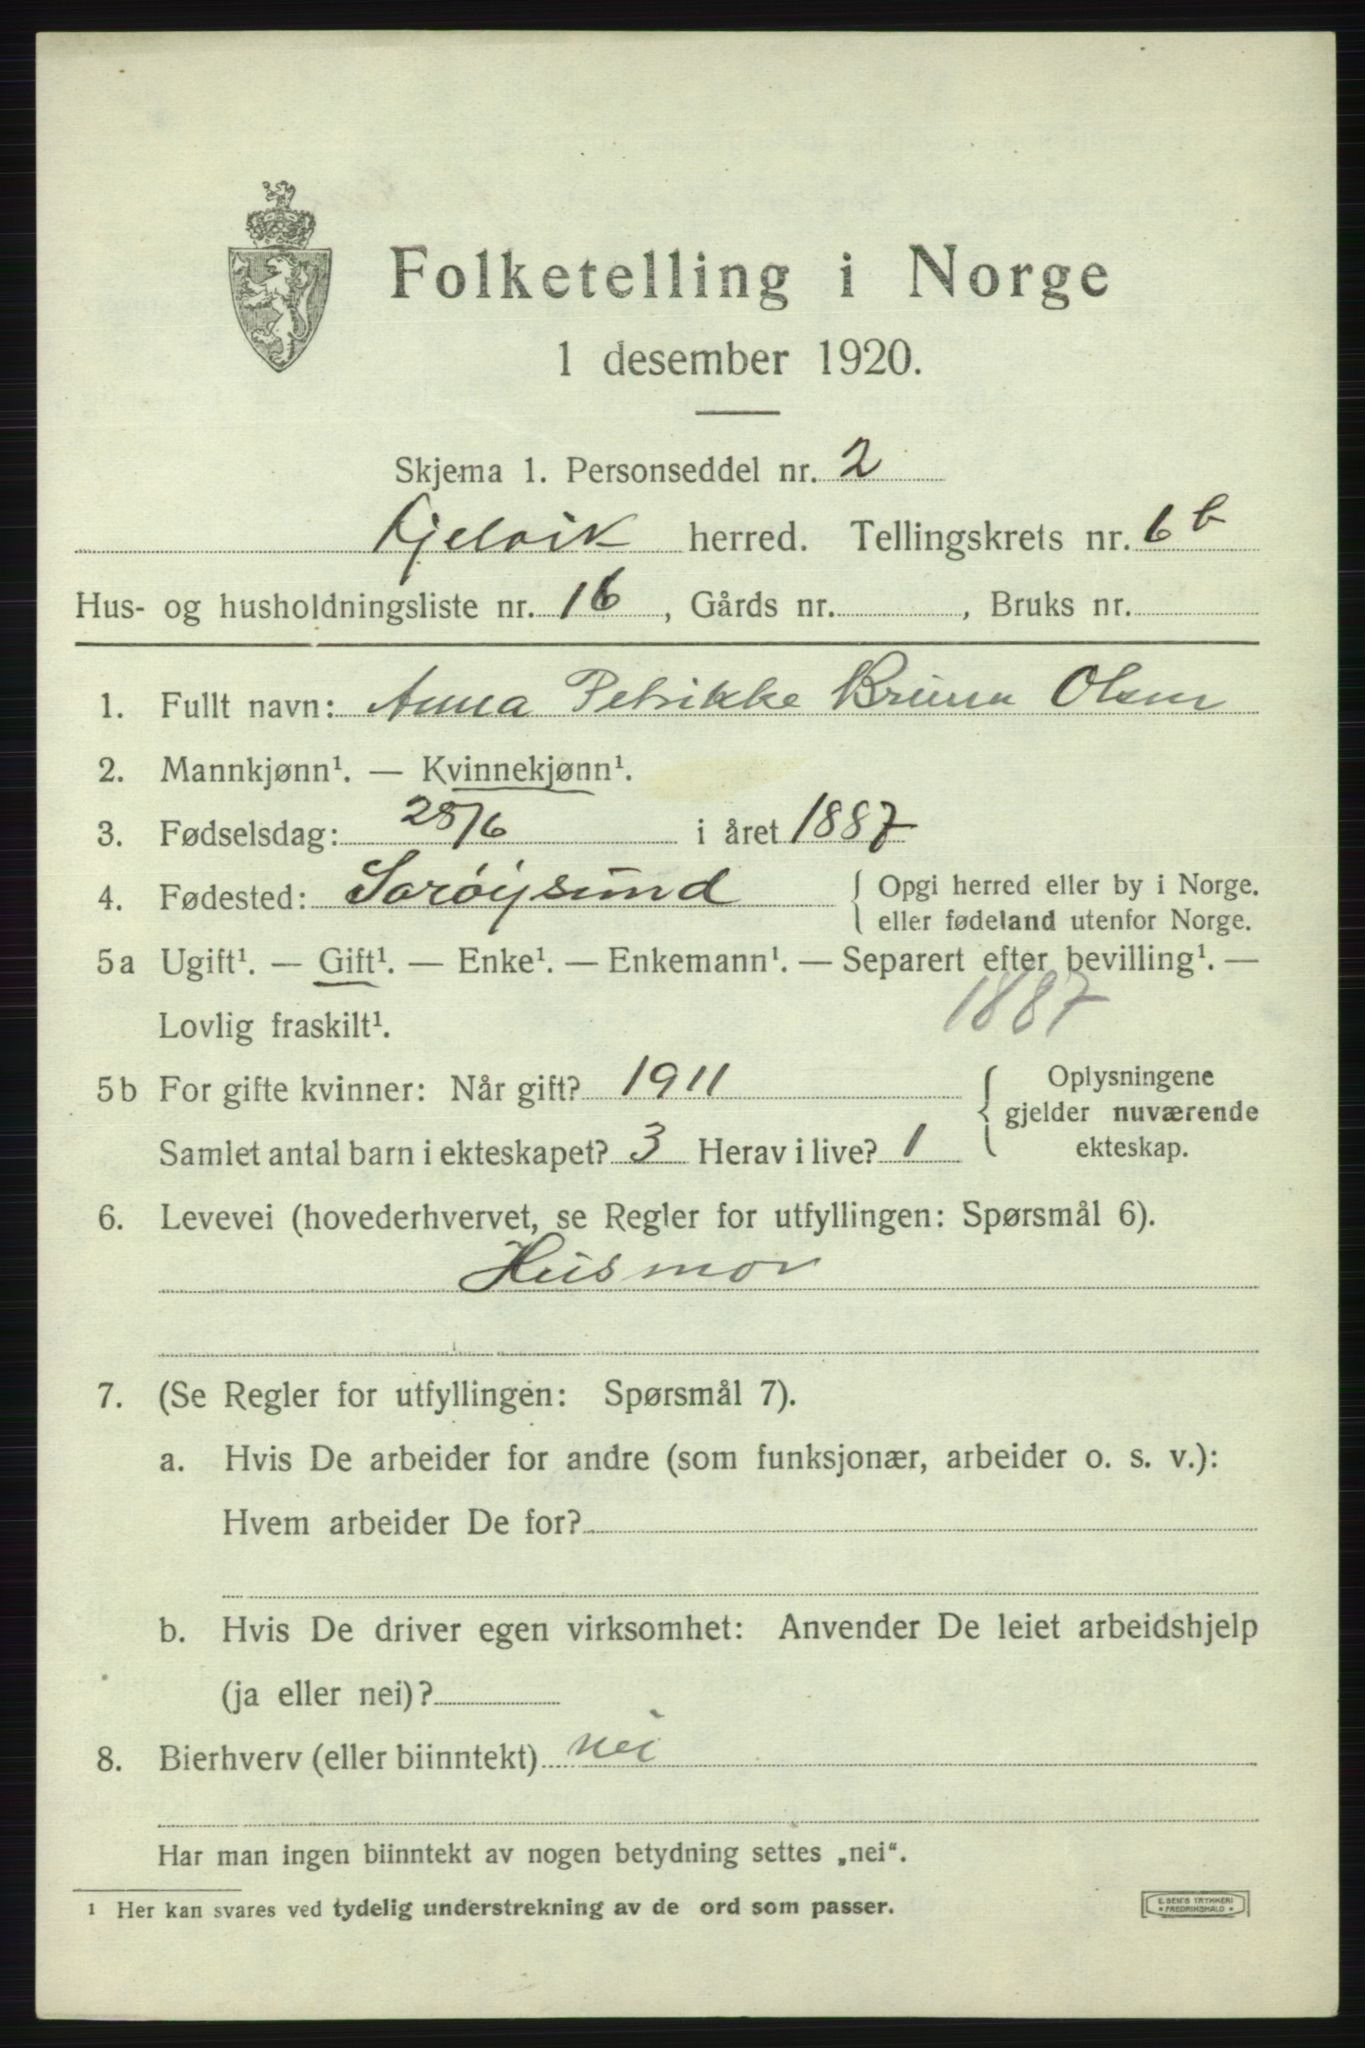 Folketelling i Norge
1 desember 1920.
Skjema 1. Personseddel nr. 2
Kjelvik herred. Tellingskrets nr. 6b
Hus- og husholdningsliste nr. 16, Gårds nr. , Bruks nr.
1. Fullt navn: Anna Petrikke Bruun Olsen
2. Mannkjønn¹. — Kvinnekjønn¹.
3. Fødselsdag: 28/6 i året 1887
4. Fødested: Sørøysund { Opgi herred eller by i Norge.
eller fødeland utenfor Norge.
5a Ugift¹. — Gift¹. — Enke¹. — Enkemann¹. — Separert efter bevilling¹. —
Lovlig fraskilt¹. 1887
5b For gifte kvinner: Når gift? 1911 { Oplysningene
gjelder nuværende
Samlet antal barn i ekteskapet? 3 Herav i live? 1 ekteskap.
6. Levevei (hovederhvervet, se Regler for utfyllingen: Spørsmål 6).
Husmor
7. (Se Regler for utfyllingen: Spørsmål 7).
a. Hvis De arbeider for andre (som funksjonær, arbeider o. s. v.):
Hvem arbeider De for?
b. Hvis De driver egen virksomhet: Anvender De leiet arbeidshjelp
(ja eller nei)?
8. Bierhverv (eller biinntekt) nei
Har man ingen biinntekt av nogen betydning settes „nei“.
¹ Her kan svares ved tydelig understrekning av de ord som passer.
E. SEM'S TRYKKERI
* FREDRIKSHALD *